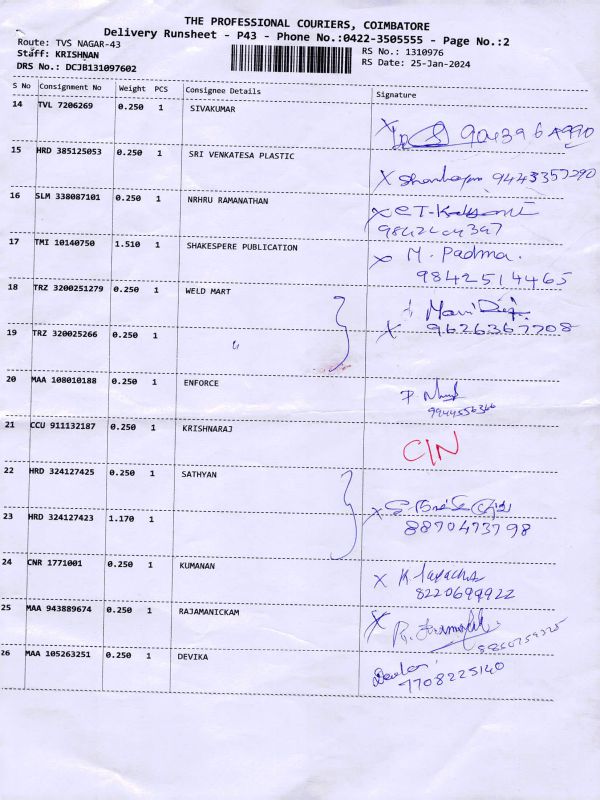 THE PROFESSIONAL COURIERS, COIMBATORE
Delivery Runsheet - P43 - Phone No.:0422-3505555 - Page No.:2
Route: TVS NAGAR-43
RS No.: 1310976
Staff: KRISHNAN
RS Date: 25-Jan-2024
DRS No.: DCJB131097602
S No Consignment No Weight PCS Consignee Details Signature
14 TVL 7206269 0.250 1 SIVAKUMAR
15 HRD 385125053 0.250 1 SRI VENKATESA PLASTIC
16 SLM 338087101 0.250 1 NRHRU RAMANATHAN
17 TMI 10140750 1.510 1 SHAKESPERE PUBLICATION M. Padma.
9842514465
18 TRZ 3200251279 0.250 1 WELD MART
19 TRZ 320025266 0.250 1 " 9626367708
20 MAA 108010188 0.250 1 ENFORCE
9944556366
21 CCU 911132187 0.250 1 KRISHNARAJ C/N
22 HRD 324127425 0.250 1 SATHYAN
23 HRD 324127423 1.170 1 8870473798
24 CNR 1771001 0.250 1 KUMANAN
8220699922
25 MAA 943889674 0.250 1 RAJAMANICKAM
26 MAA 105263251 0.250 1 DEVIKA
7708225140